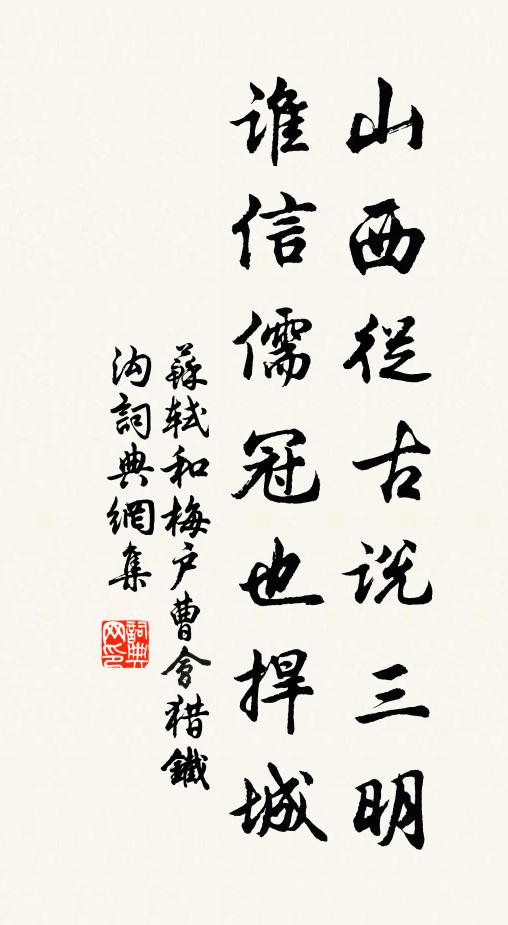 山西從古說三明
誰信儒冠也捍城
蘇軾和梅户曹會獵鐵
溝詞典網集
詞典
网印